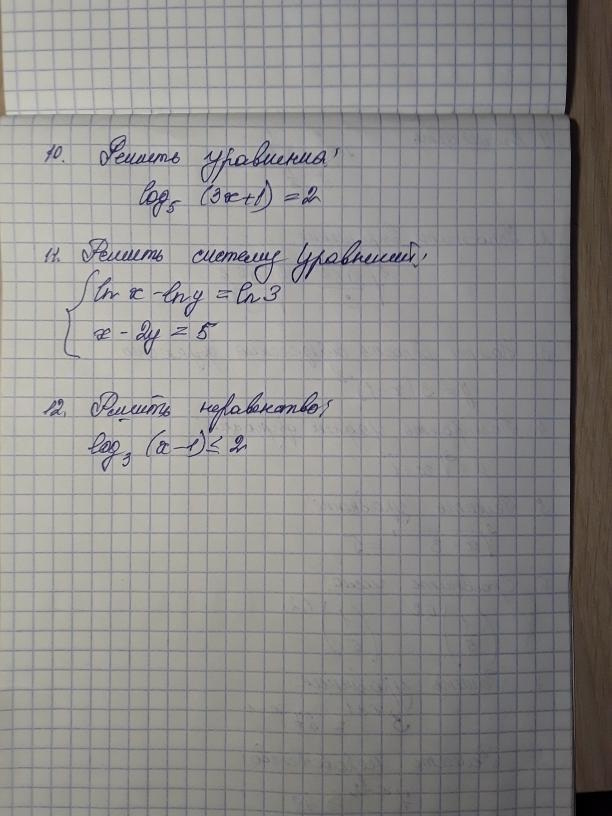 10. Решить уравнения:
log₅ (3x+1) = 2
11. Решить систему уравнений:
{ ln x - ln y = ln 3
x - 2y = 5
12. Решить неравенство:
log₃ (x-1) ≤ 2